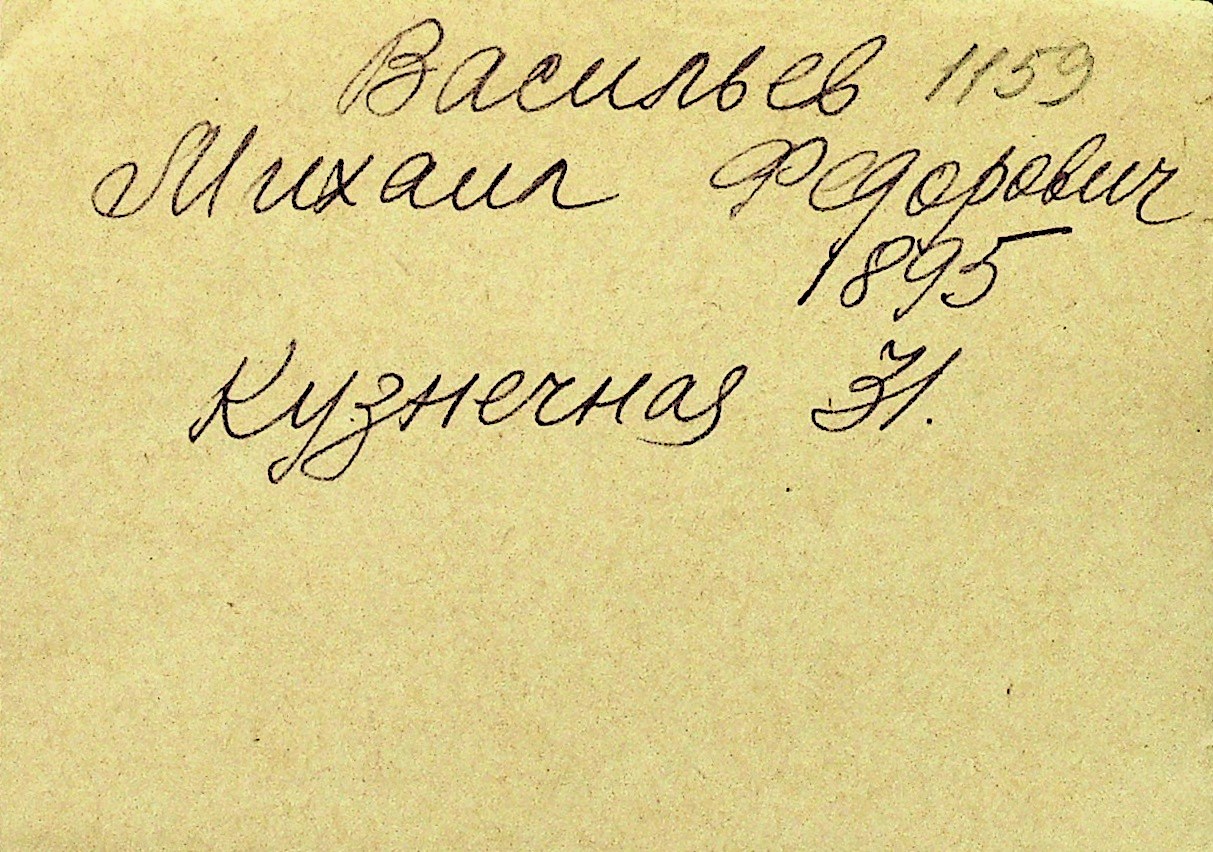 Васильев 1159
Михаил Федорович
1895
Кузнечная 31.